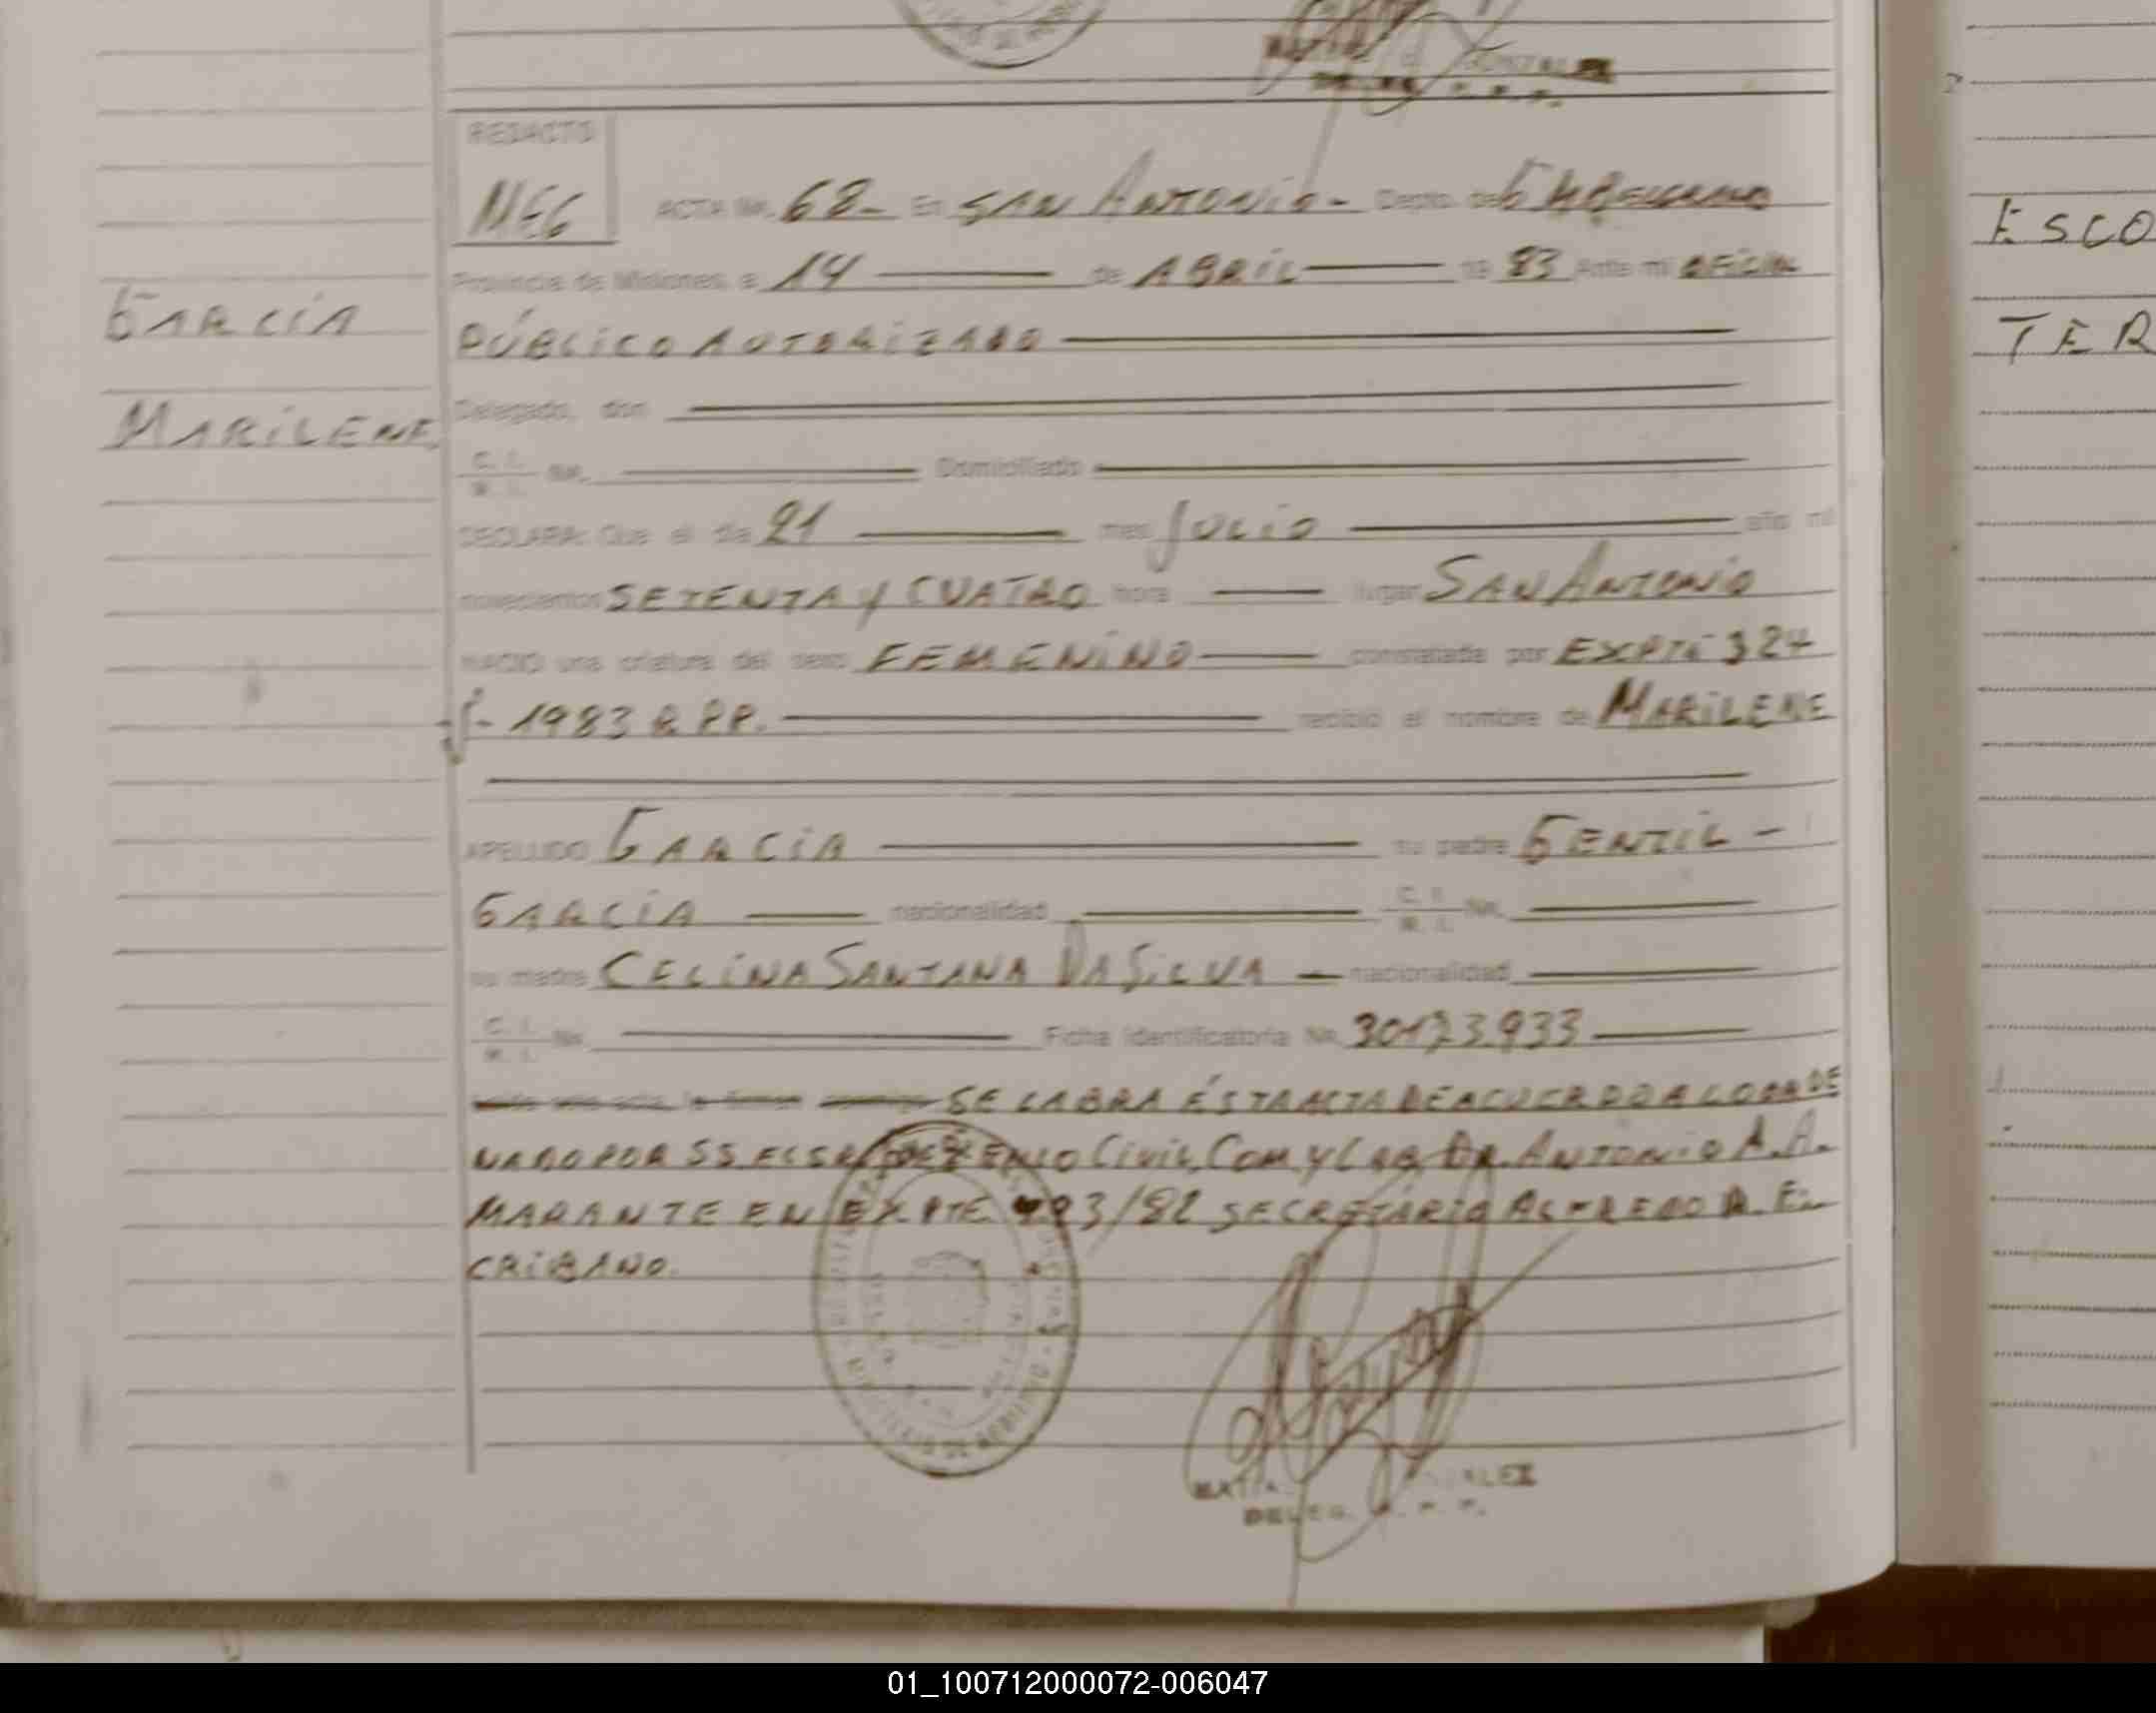 REDACTO
MEG ACTA Nº. 68- En SAN ANTONIO- Depto. de G. MBELGRANO
Provincia de Misiones, a 14 de ABRIL 19 83 Ante mi OFICIAL
PÚBLICO AUTORIZADO
Delegado, don
C. I.
M. I. No. Domiciliado
DECLARA: Que el día 21 mes JULIO año mil
novecientos SETENTA Y CUATRO hora lugar SAN ANTONIO
NACIO una criatura del sexo FEMENINO constatada por EXPTE 324
1983 R.P.P. recibió el nombre de MARILENE
APELLIDO GARCIA su padre GENTIL -
GARCÍA nacionalidad C. I.
M. I. No.
su madre CELINA SANTANA DA SILVA - nacionalidad
C. I.
M. I. No. Ficha Identificatoria No. 30123.933
SE LABRA ÉSTA ACTA DE ACUERDO A LO ORDE
NADO POR SS EL SR Civil, Com. y Lab. DR. ANTONIO A. A.
MARANTE EN EXPTE /82 SECRETARIO ALFREDO
CRIBANO.
GARCÍA
MARILENE
DELEG. R. P. P.
ESCO
TER
01_100712000072-006047